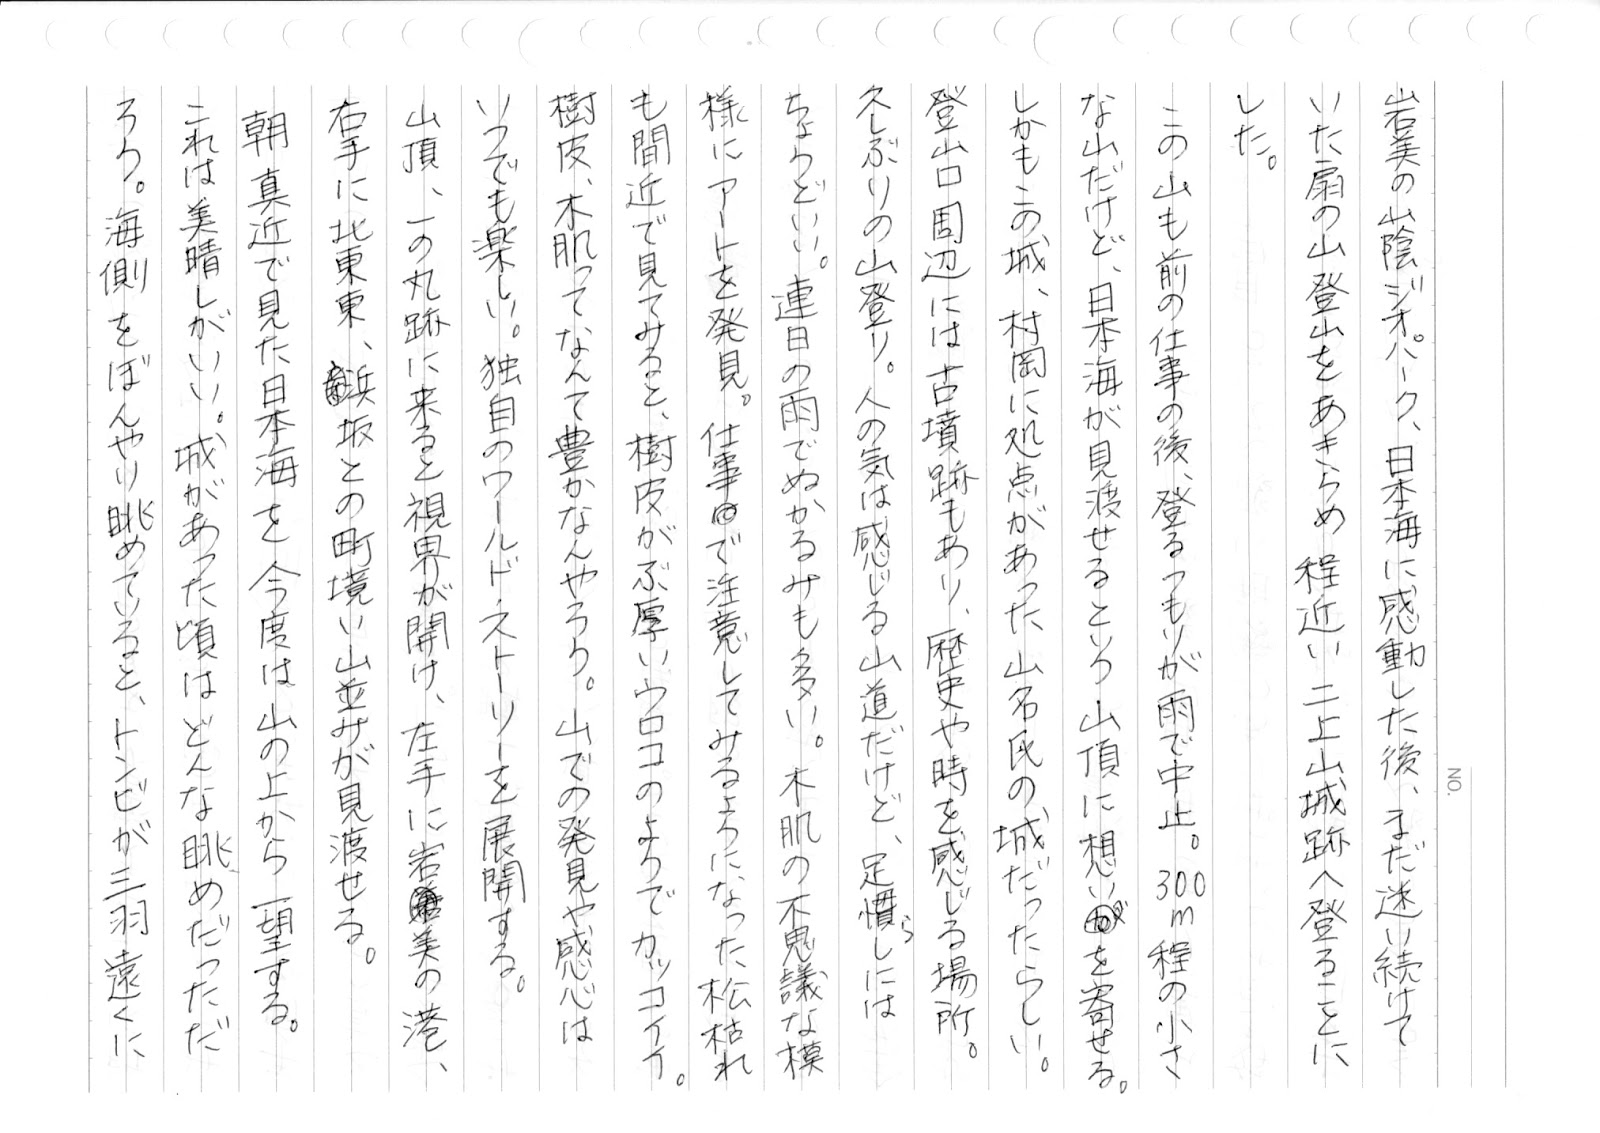 NO.
岩美の山陰ジオパーク、日本海に感動した後、まだ迷い続けて
いた扇の山登山をあきらめ 程近い 二上山城跡へ登ることに
した。
この山も前の仕事の後、登るつもりが雨で中止。300m程の小さ
な山だけど、日本海が見渡せるという 山頂に想いを寄せる。
しかもこの城、村岡に処点があった 山名氏の城だったらしい。
登山口周辺には古墳跡もあり、歴史や時を感じる場所。
久しぶりの山登り。人の気は感じる山道だけど、足慣らしには
ちょうどいい。連日の雨でぬかるみも多い。木肌の不思議な模
様にアートを発見。仕事で注意してみるようになった松枯れ
も間近で見てみると、樹皮がぶ厚いウロコのようでカッコイイ。
樹皮、木肌ってなんて豊かなんやろう。山での発見や感心は
いつでも楽しい。独自のワールド・ストーリーを展開する。
山頂、一の丸跡に来ると視界が開け、左手に岩美の港、
右手に北東東、浜坂との町境い山並みが見渡せる。
朝 真近で見た日本海を 今度は山の上から 一望する。
これは美晴しがいい。城があった頃はどんな眺めだっただ
ろう。海側をぼんやり眺めていると、トンビが三羽遠くに